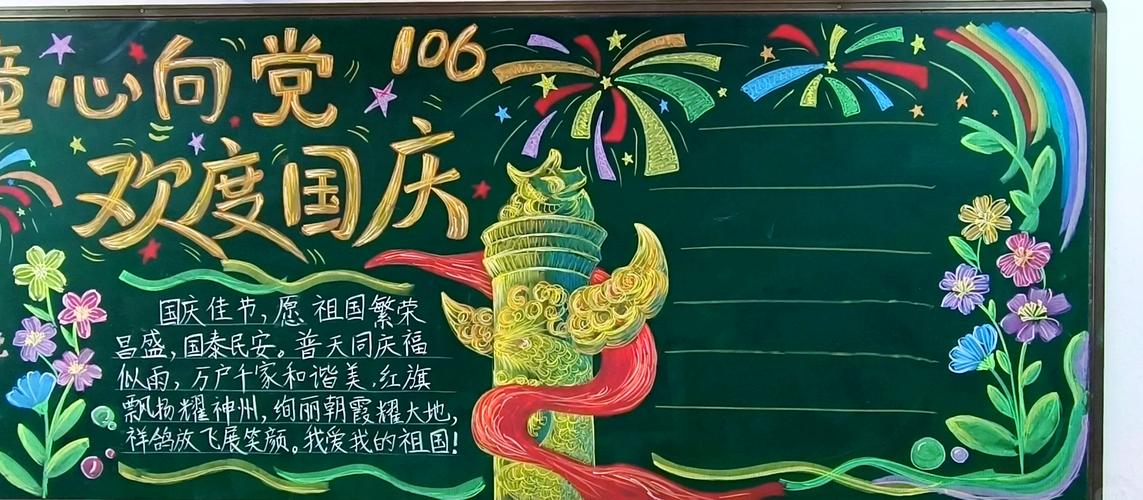 童心向党
106
欢度国庆
国庆佳节,愿祖国繁荣
昌盛,国泰民安。普天同庆福
似雨,万户千家和谐美.红旗
飘扬耀神州,绚丽朝霞耀大地,
祥鸽放飞展笑颜。我爱我的祖国!